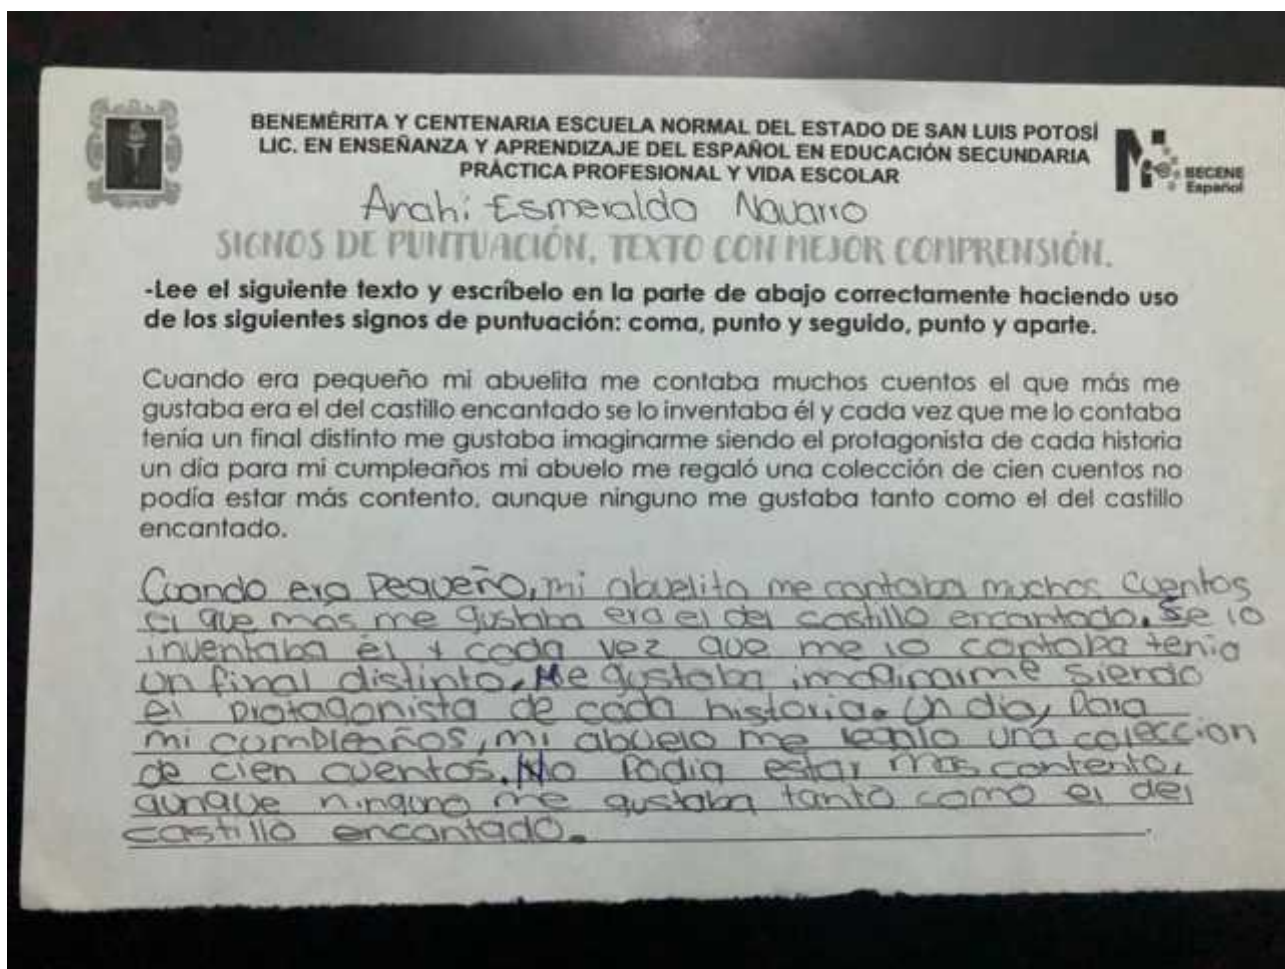 BENEMÉRITA Y CENTENARIA ESCUELA NORMAL DEL ESTADO DE SAN LUIS POTOSÍ
LIC. EN ENSEÑANZA Y APRENDIZAJE DEL ESPAÑOL EN EDUCACIÓN SECUNDARIA
PRÁCTICA PROFESIONAL Y VIDA ESCOLAR
BECENE
Español
Anahi Esmeralda Navarro
SIGNOS DE PUNTUACIÓN, TEXTO CON MEJOR COMPRENSIÓN.
-Lee el siguiente texto y escríbelo en la parte de abajo correctamente haciendo uso
de los siguientes signos de puntuación: coma, punto y seguido, punto y aparte.
Cuando era pequeño mi abuelita me contaba muchos cuentos el que más me
gustaba era el del castillo encantado se lo inventaba él y cada vez que me lo contaba
tenía un final distinto me gustaba imaginarme siendo el protagonista de cada historia
un día para mi cumpleaños mi abuelo me regaló una colección de cien cuentos no
podía estar más contento, aunque ninguno me gustaba tanto como el del castillo
encantado.
Cuando era Pequeño, mi abuelito me contaba muchos cuentos
el que mas me gustaba era el del castillo encantado. Se lo
inventaba él y cada vez que me lo contaba tenia
un final distinto. Me gustaba imaginarme siendo
el protagonista de cada historia. Un dia, Para
mi cumpleaños, mi abuelo me regalo una coleccion
de cien cuentos. No Podia estar mas contento,
aunque ninguno me gustaba tanto como el del
castillo encantado.